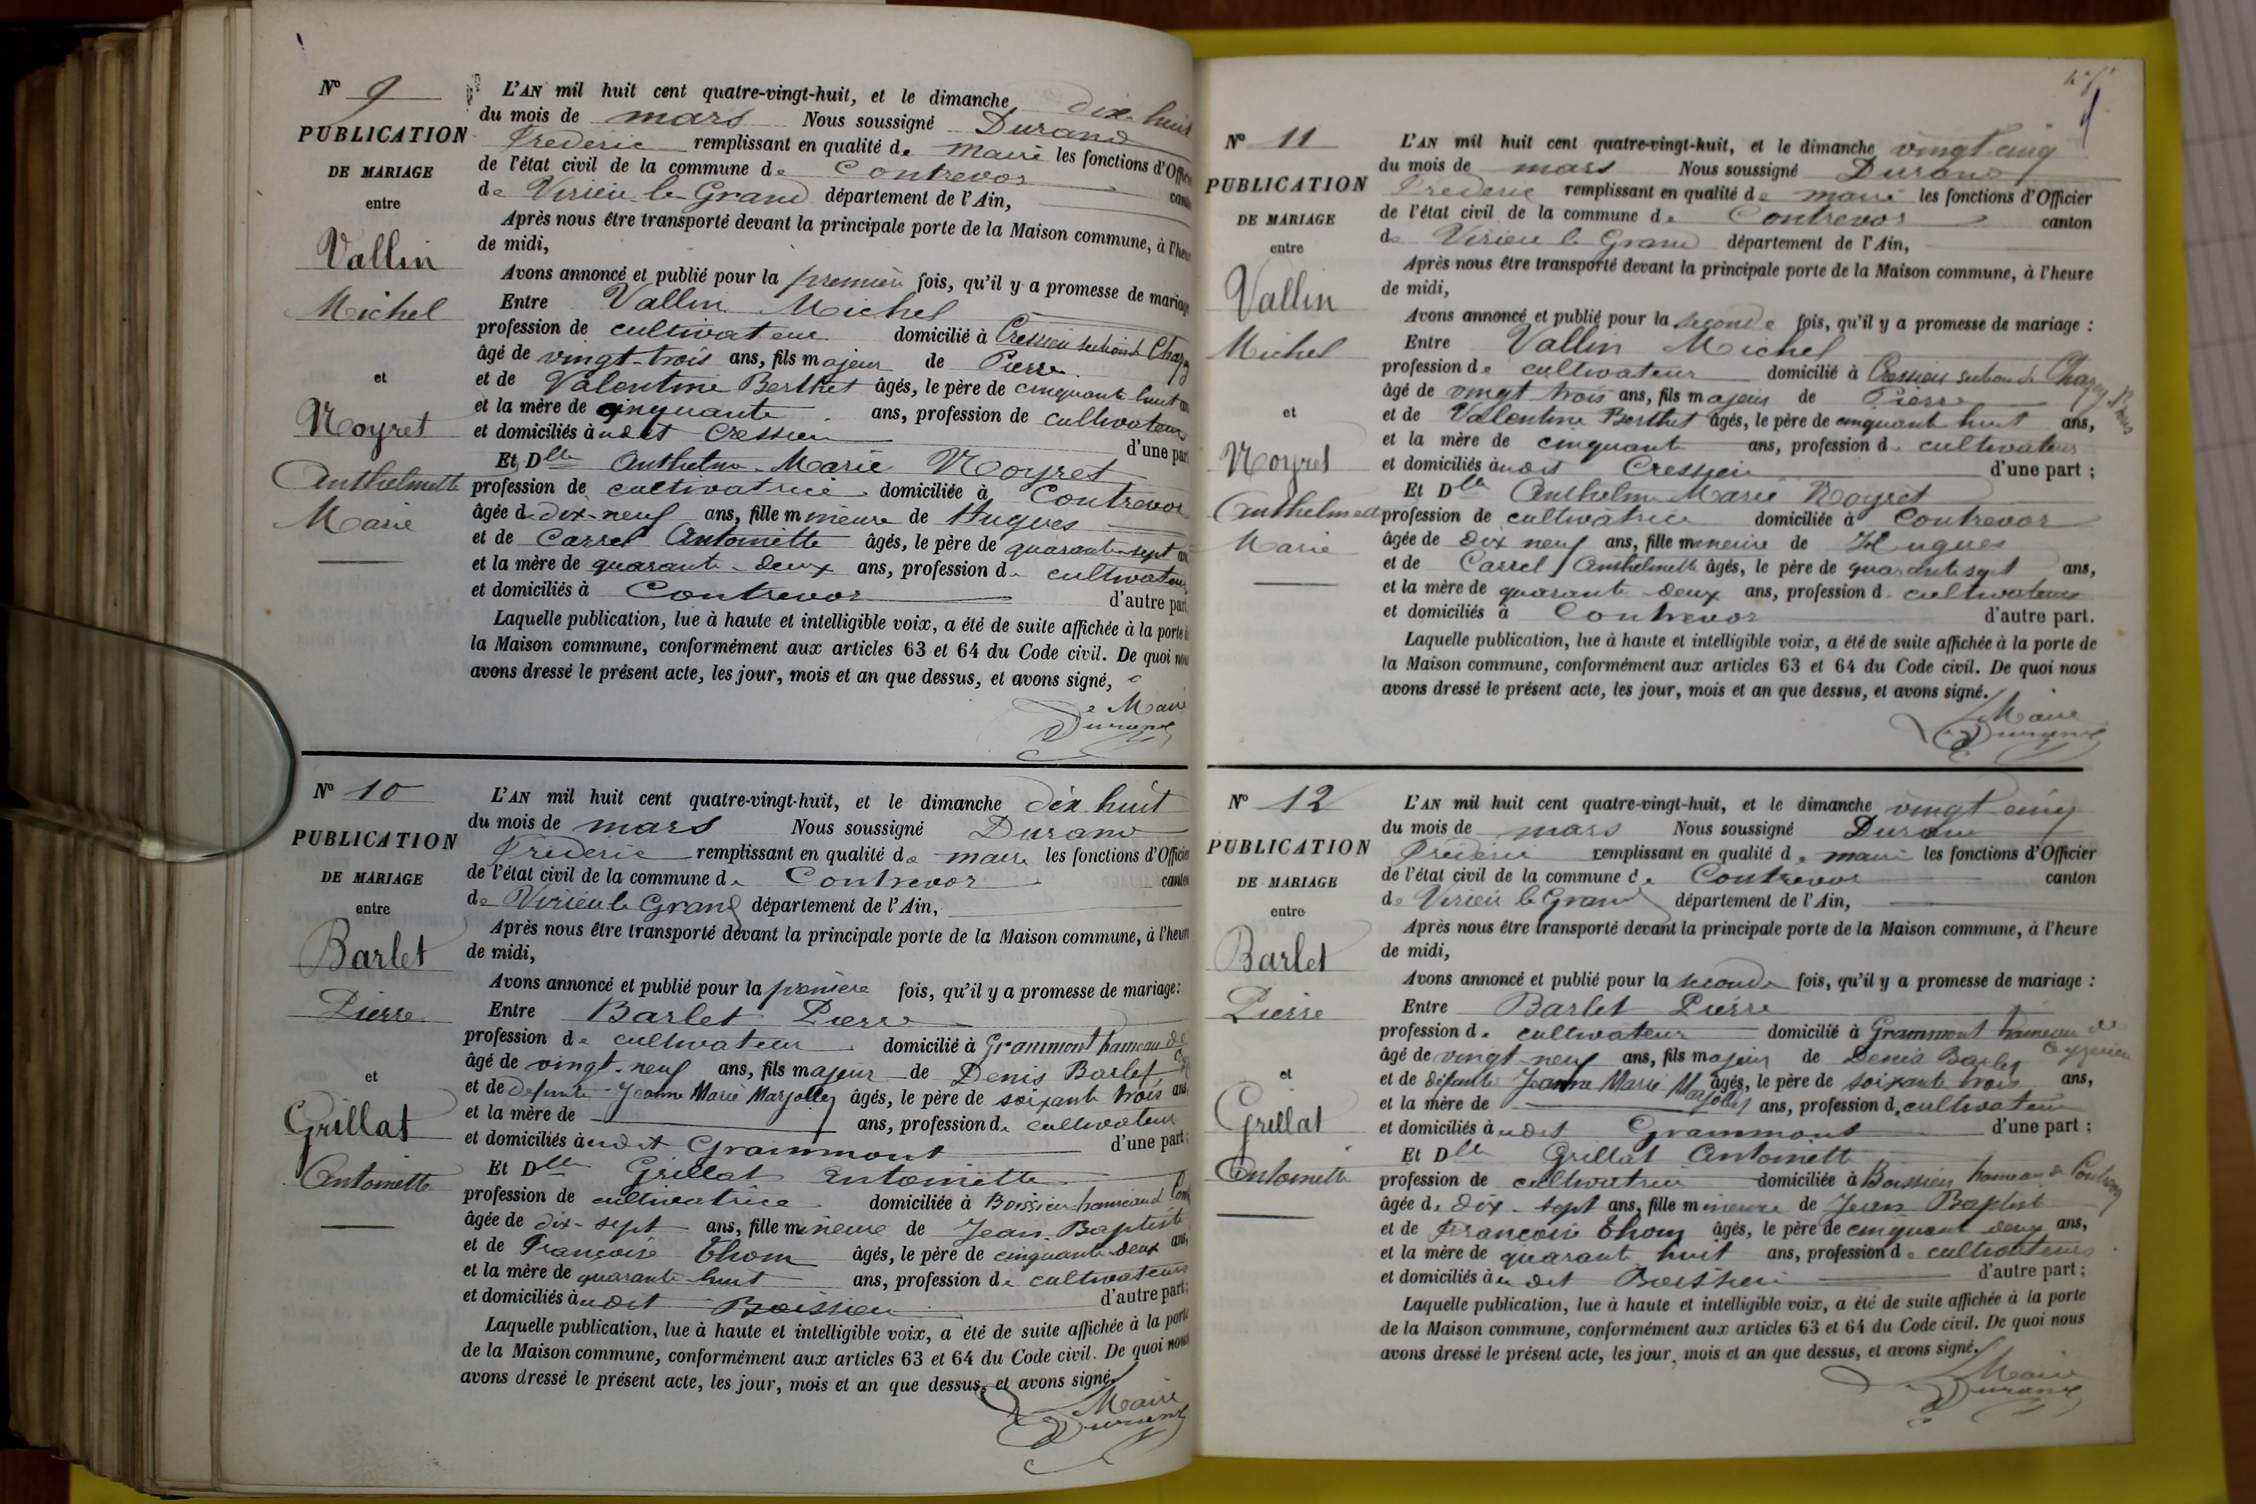 N° 9
PUBLICATION
DE MARIAGE
entre
Vallin
Michel
et
Noyret
Anthelmette
Marie
L'AN mil huit cent quatre-vingt-huit, et le dimanche dix huit
du mois de mars Nous soussigné Durand
Frederic remplissant en qualité de maire les fonctions d'Officier
de l'état civil de la commune de Contrevoz canton
de Virieu le Grand département de l'Ain,
Après nous être transporté devant la principale porte de la Maison commune, à l'heure
de midi,
Avons annoncé et publié pour la première fois, qu'il y a promesse de mariage
Entre Vallin Michel
profession de cultivateur domicilié à Cressieu section de Chazey
âgé de vingt-trois ans, fils majeur de Pierre
et de Valentine Berthet âgés, le père de cinquante huit ans
et la mère de cinquante ans, profession de cultivateurs
et domiciliés à udit Cressieu d'une part
Et Dlle Anthelme Marie Noyret
profession de cultivatrice domiciliée à Contrevoz
âgée de dix-neuf ans, fille mineure de Hugues
et de Carrel Antoinette âgés, le père de quarante sept ans
et la mère de quarante-deux ans, profession de cultivateurs
et domiciliés à Contrevoz d'autre part
Laquelle publication, lue à haute et intelligible voix, a été de suite affichée à la porte de
la Maison commune, conformément aux articles 63 et 64 du Code civil. De quoi nous
avons dressé le présent acte, les jour, mois et an que dessus, et avons signé,
Le Maire
Durand
N° 10
PUBLICATION
DE MARIAGE
entre
Barlet
Pierre
et
Grillat
Antoinette
L'AN mil huit cent quatre-vingt-huit, et le dimanche dix huit
du mois de mars Nous soussigné Durand
Frederic remplissant en qualité de maire les fonctions d'Officier
de l'état civil de la commune de Contrevoz canton
de Virieu le Grand département de l'Ain,
Après nous être transporté devant la principale porte de la Maison commune, à l'heure
de midi,
Avons annoncé et publié pour la première fois, qu'il y a promesse de mariage :
Entre Barlet Pierre
profession de cultivateur domicilié à Grammont hameau de
âgé de vingt-neuf ans, fils majeur de Denis Barlet
et de defunte Jeanne Marie Marjolley âgés, le père de soixante trois ans
et la mère de ans, profession de cultivateur
et domiciliés à udit Grammont d'une part ;
Et Dlle Grillat Antoinette
profession de cultivatrice domiciliée à Boissieu hameau d Cont
âgée de dix-sept ans, fille mineure de Jean-Baptiste
et de Françoise Thom âgés, le père de cinquante-deux ans,
et la mère de quarante-huit ans, profession de cultivateurs
et domiciliés à udit Boissieu d'autre part ;
Laquelle publication, lue à haute et intelligible voix, a été de suite affichée à la porte
de la Maison commune, conformément aux articles 63 et 64 du Code civil. De quoi nous
avons dressé le présent acte, les jour, mois et an que dessus, et avons signé.
Maire
Durand
N° 11
PUBLICATION
DE MARIAGE
entre
Vallin
Michel
et
Noyret
Anthelmette
Marie
L'AN mil huit cent quatre-vingt-huit, et le dimanche vingt cinq
du mois de mars Nous soussigné Durand
Frederic remplissant en qualité de maire les fonctions d'Officier
de l'état civil de la commune de Contrevoz canton
de Virieu le Grand département de l'Ain,
Après nous être transporté devant la principale porte de la Maison commune, à l'heure
de midi,
Avons annoncé et publié pour la seconde fois, qu'il y a promesse de mariage :
Entre Vallin Michel
profession de cultivateur domicilié à Cressieu section de Chazey Bons
âgé de vingt trois ans, fils majeur de Pierre
et de Valentine Berthet âgés, le père de cinquante huit ans,
et la mère de cinquante ans, profession de cultivateurs
et domiciliés à udit Cressieu d'une part ;
Et Dlle Anthelme Marie Noyret
profession de cultivatrice domiciliée à Contrevoz
âgée de dix neuf ans, fille mineure de Hugues
et de Carrel Anthelmette âgés, le père de quarante sept ans,
et la mère de quarante-deux ans, profession de cultivateurs
et domiciliés à Contrevoz d'autre part.
Laquelle publication, lue à haute et intelligible voix, a été de suite affichée à la porte de
la Maison commune, conformément aux articles 63 et 64 du Code civil. De quoi nous
avons dressé le présent acte, les jour, mois et an que dessus, et avons signé.
Maire
Durand
N° 12
PUBLICATION
DE MARIAGE
entre
Barlet
Pierre
et
Grillat
Antoinette
L'AN mil huit cent quatre-vingt-huit, et le dimanche vingt cinq
du mois de mars Nous soussigné Durand
Frederic remplissant en qualité de maire les fonctions d'Officier
de l'état civil de la commune de Contrevoz canton
de Virieu le Grand département de l'Ain,
Après nous être transporté devant la principale porte de la Maison commune, à l'heure
de midi,
Avons annoncé et publié pour la seconde fois, qu'il y a promesse de mariage :
Entre Barlet Pierre
profession de cultivateur domicilié à Grammont hameau de Ceyzerieu
âgé de vingt-neuf ans, fils majeur de Denis Barlet
et de défunte Jeanne Marie Marjolley âgés, le père de soixante trois ans,
et la mère de ans, profession de cultivateur
et domiciliés à udit Grammont d'une part ;
Et Dlle Grillat Antoinette
profession de cultivatrice domiciliée à Boissieu hameau de Contrevoz
âgée de dix-sept ans, fille mineure de Jean Baptiste
et de Françoise Thom âgés, le père de cinquante deux ans,
et la mère de quarante huit ans, profession de cultivateurs
et domiciliés à udit Boissieu d'autre part ;
Laquelle publication, lue à haute et intelligible voix, a été de suite affichée à la porte
de la Maison commune, conformément aux articles 63 et 64 du Code civil. De quoi nous
avons dressé le présent acte, les jour, mois et an que dessus, et avons signé.
Maire
Durand